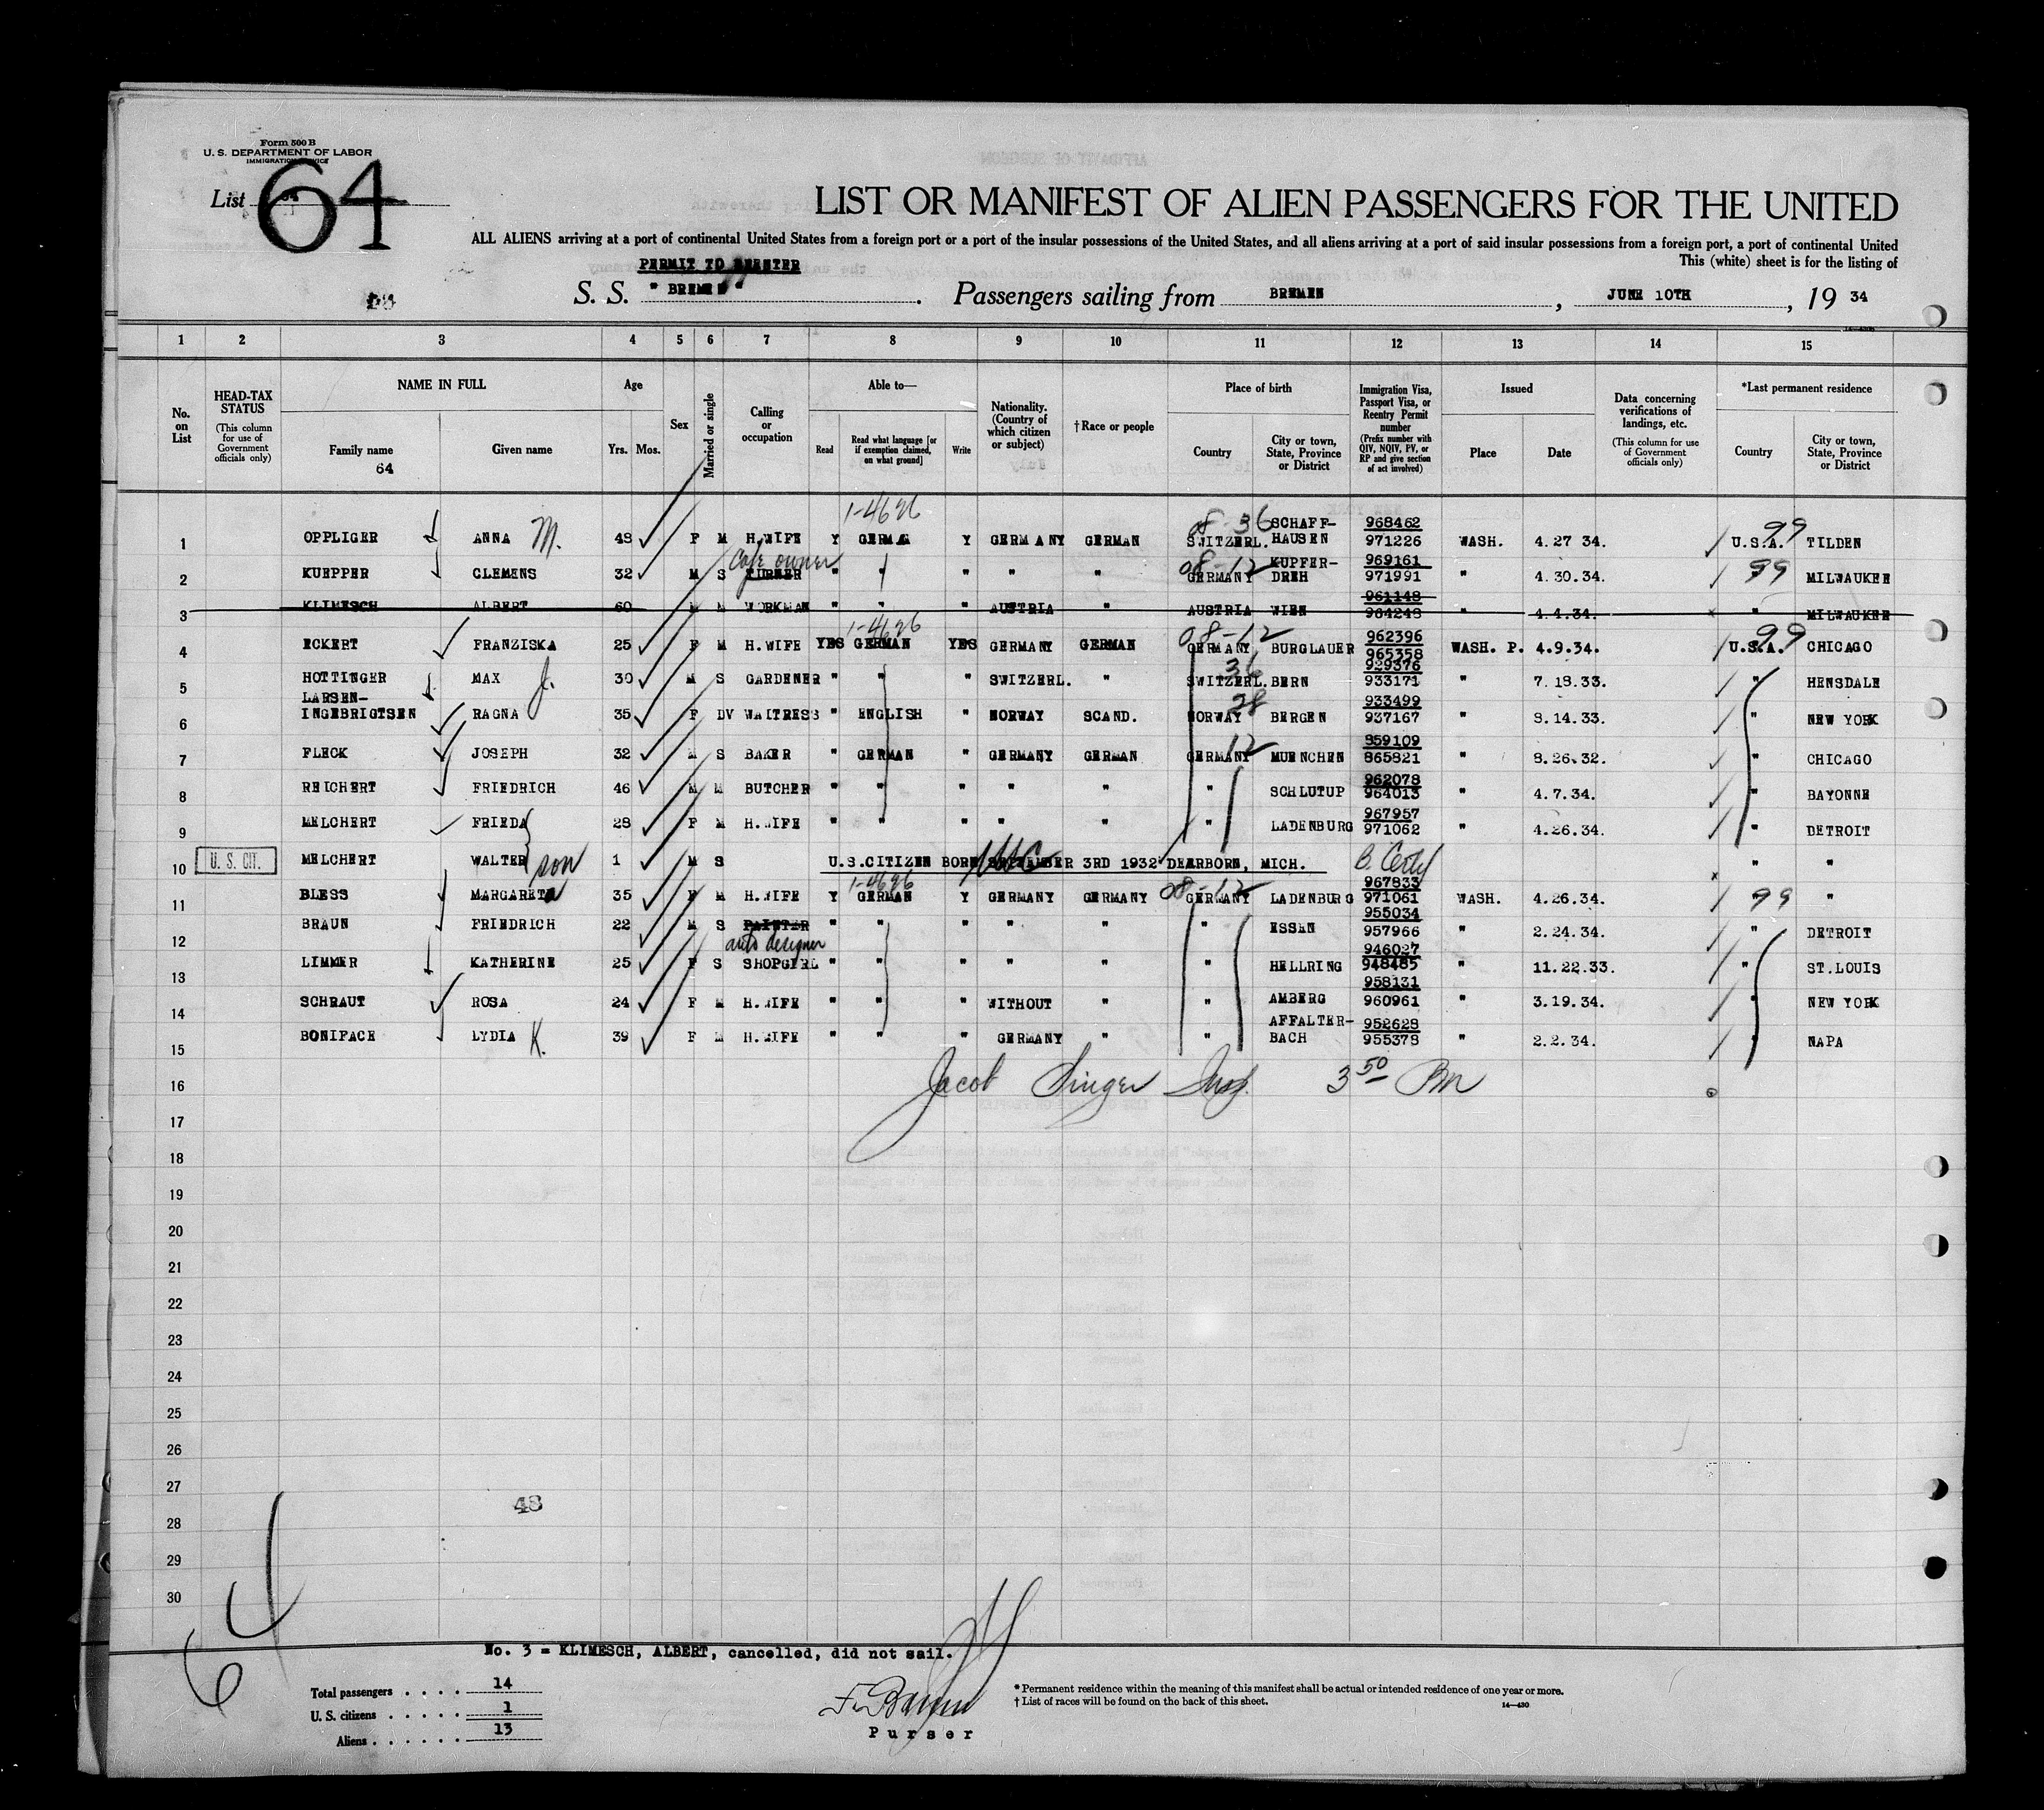 Form 500 B
U. S. DEPARTMENT OF LABOR
IMMIGRATION SERVICE
List 64
LIST OR MANIFEST OF ALIEN PASSENGERS FOR THE UNITED
ALL ALIENS arriving at a port of continental United States from a foreign port or a port of the insular possessions of the United States, and all aliens arriving at a port of said insular possessions from a foreign port, a port of continental United
This (white) sheet is for the listing of
PERMIT TO REENTER
S. S. "BREMEN". Passengers sailing from BREMEN, JUNE 10TH, 19 34
1 2 3 4 5 6 7 8 9 10 11 12 13 14 15
No. on List
HEAD-TAX STATUS (This column for use of Government officials only)
NAME IN FULL
Family name
64
Given name
Age
Yrs. Mos.
Sex
Married or single
Calling or occupation
Able to—
Read
Read what language [or if exemption claimed, on what ground]
Write
Nationality. (Country of which citizen or subject)
†Race or people
Place of birth
Country
City or town, State, Province or District
Immigration Visa, Passport Visa, or Reentry Permit number (Prefix number with QIV, NQIV, PV, or RP and give section of act involved)
Issued
Place
Date
Data concerning verifications of landings, etc. (This column for use of Government officials only)
*Last permanent residence
Country
City or town, State, Province or District
1-4626 08-36 SCHAFF- 968462 99
1 OPPLIGER ANNA M. 48 F M H.WIFE Y GERMA Y GERMANY GERMAN SWITZERL. HAUSEN 971226 WASH. 4.27 34. U.S.A. TILDEN
cafe owner 08-12 KUPFER- 969161
2 KUEPPER CLEMENS 32 M S TURNER " " " " " GERMANY DREH 971991 " 4.30.34. 99 MILWAUKEE
961148
3 KLIMESCH ALBERT 60 M M WORKMAN " " " AUSTRIA " AUSTRIA WIEN 964248 " 4.4.34. " MILWAUKEE
1-4626 08-12 962396 99
4 ECKERT FRANZISKA 25 F M H.WIFE YES GERMAN YES GERMANY GERMAN GERMANY BURGLAUER 965358 WASH. P. 4.9.34. U.S.A. CHICAGO
36 929376
5 HOTTINGER MAX J. 30 M S GARDENER " " " SWITZERL. " SWITZERL. BERN 933171 " 7.18.33. " HENSDALE
LARSEN- 28 933499
6 INGEBRIGTSEN RAGNA 35 F DV WAITRESS " ENGLISH " NORWAY SCAND. NORWAY BERGEN 937167 " 8.14.33. " NEW YORK
12 859109
7 FLECK JOSEPH 32 M S BAKER " GERMAN " GERMANY GERMAN GERMANY MUENCHEN 865821 " 8.26.32. " CHICAGO
962078
8 REICHERT FRIEDRICH 46 M M BUTCHER " " " " " " SCHLUTUP 964013 " 4.7.34. " BAYONNE
967957
9 MELCHERT FRIEDA 28 F M H.WIFE " " " " " " LADENBURG 971062 " 4.26.34. " DETROIT
10 U. S. CIT. MELCHERT WALTER son 1 M S U.S.CITIZEN BORN SEPTEMBER 3RD 1932 DEARBORN, MICH. " "
1-4626 08-12 967833
11 BLESS MARGARETA 35 F M H.WIFE Y GERMAN Y GERMANY GERMANY GERMANY LADENBURG 971061 WASH. 4.26.34. 99 "
955034
12 BRAUN FRIEDRICH 22 M S PAINTER " " " " " " ESSEN 957966 " 2.24.34. " DETROIT
auto designer 946027
13 LIMMER KATHERINE 25 F S SHOPGIRL " " " " " " HELLRING 948485 " 11.22.33. " ST.LOUIS
958131
14 SCHRAUT ROSA 24 F M H.WIFE " " " WITHOUT " " AMBERG 960961 " 3.19.34. " NEW YORK
AFFALTER- 952628
15 BONIFACE LYDIA K. 39 F M H.WIFE " " " GERMANY " " BACH 955378 " 2.2.34. " NAPA
16 Jacob Singer Insp. 3 50 PM
17
18
19
20
21
22
23
24
25
26
27
48
28
29
30
64
No. 3 = KLIMESCH, ALBERT, cancelled, did not sail.
Total passengers . . . . 14
U. S. citizens . . . . . 1
Aliens . . . . . . 13
Purser
*Permanent residence within the meaning of this manifest shall be actual or intended residence of one year or more.
†List of races will be found on the back of this sheet.
14—430